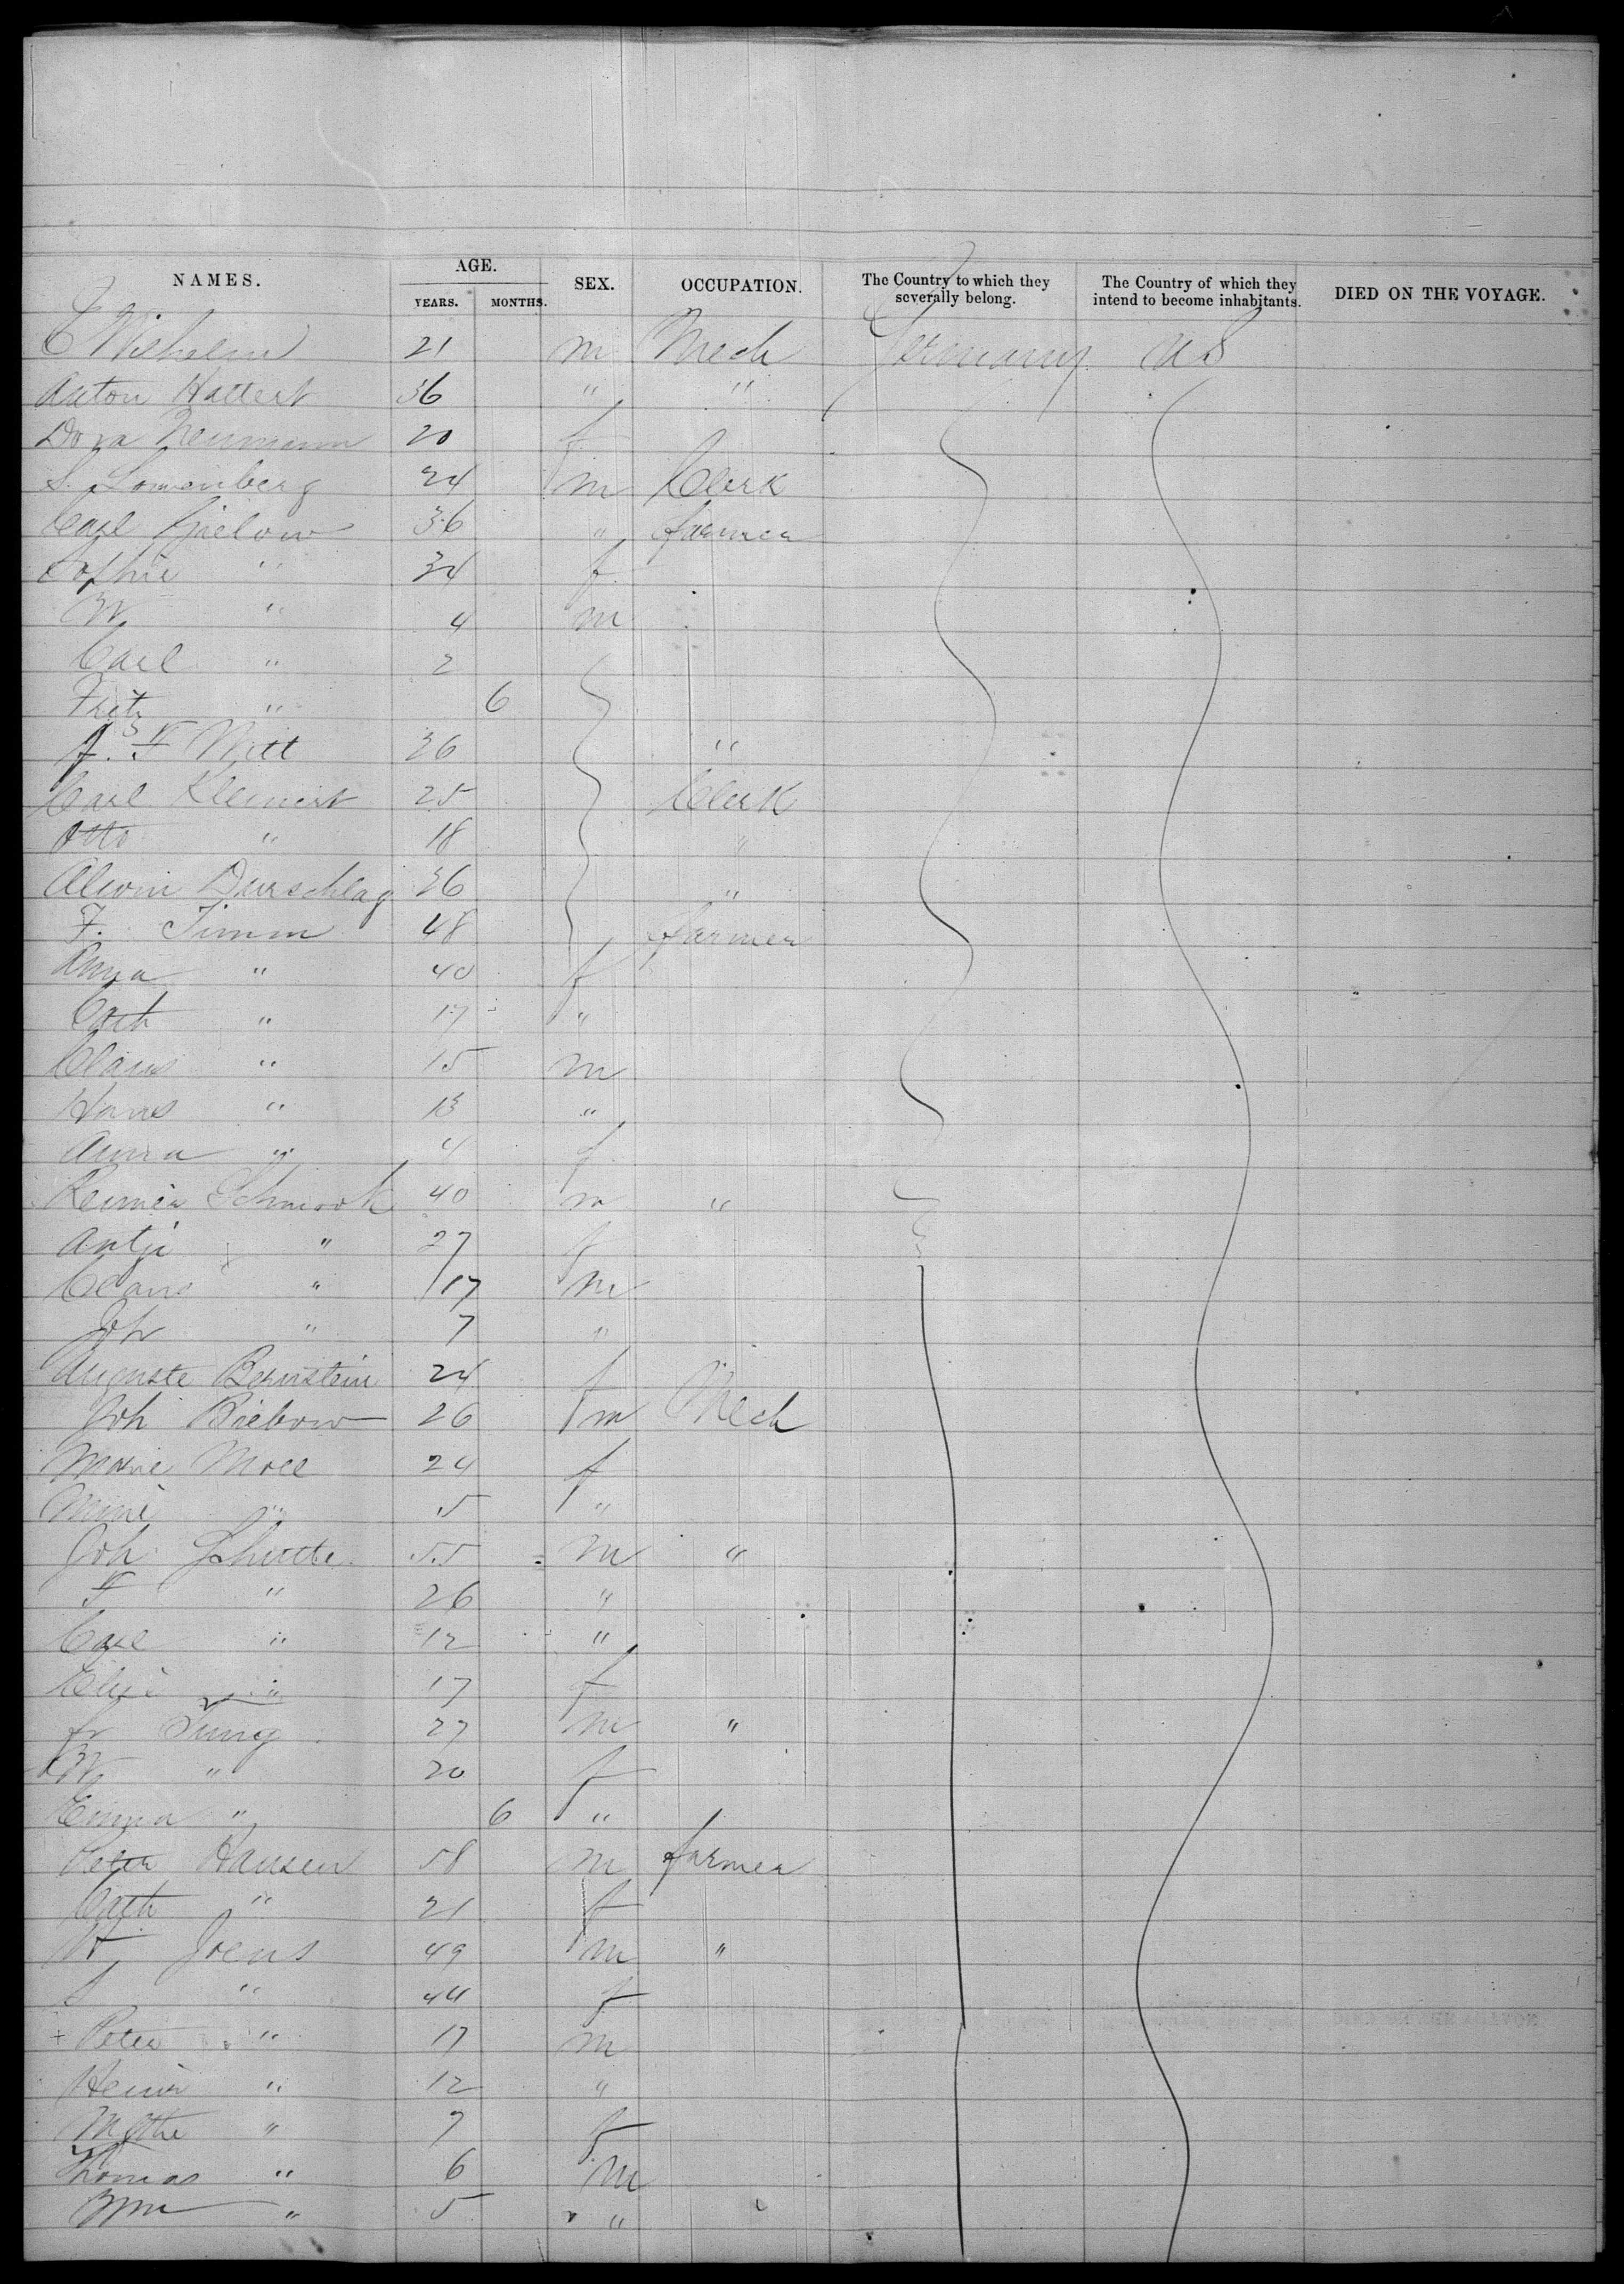 NAMES. AGE. SEX. OCCUPATION. The Country to which they severally belong. The Country of which they intend to become inhabitants. DIED ON THE VOYAGE.
YEARS. MONTHS.
C Wilhelm 21 m Mech Germany U S
Anton Hattert 36 " "
Dora Neumann 20 f
S. Lowenberg 24 m Clerk
Carl Gielow 36 " farmer
Sophie " 34 f
W " 4 m
Carl " 2
Fritz " 6
J. F Witt 36 "
Carl Kleinert 25 Clerk
Otto " 18 "
Alwin Durschlag 36 "
F. Timm 48 farmer
Anna " 40 f
Cath " 17 "
Claus " 15 m
Hans " 13 "
Anna " 4 f
Reimer Schmook 40 m "
Antje " 27 f
Claus " 17 m
Joh " 7 "
Auguste Bernstein 24 f
Joh Biebow 26 m Mech
Marie Moll 24 f
Mini " 5 "
Joh Schutte 55 m "
F " 26 "
Carl " 12 "
Elise " 17 f
Fr Jung 27 m "
W " 20 f
Emma " 6 "
Peter Hansen 58 m farmer
Cath " 21 f
H Joens 49 m "
S " 44 f
+ Peter " 17 m
Heinr " 12 "
" 7 f
Thomas " 6 m
Wm " 5 "